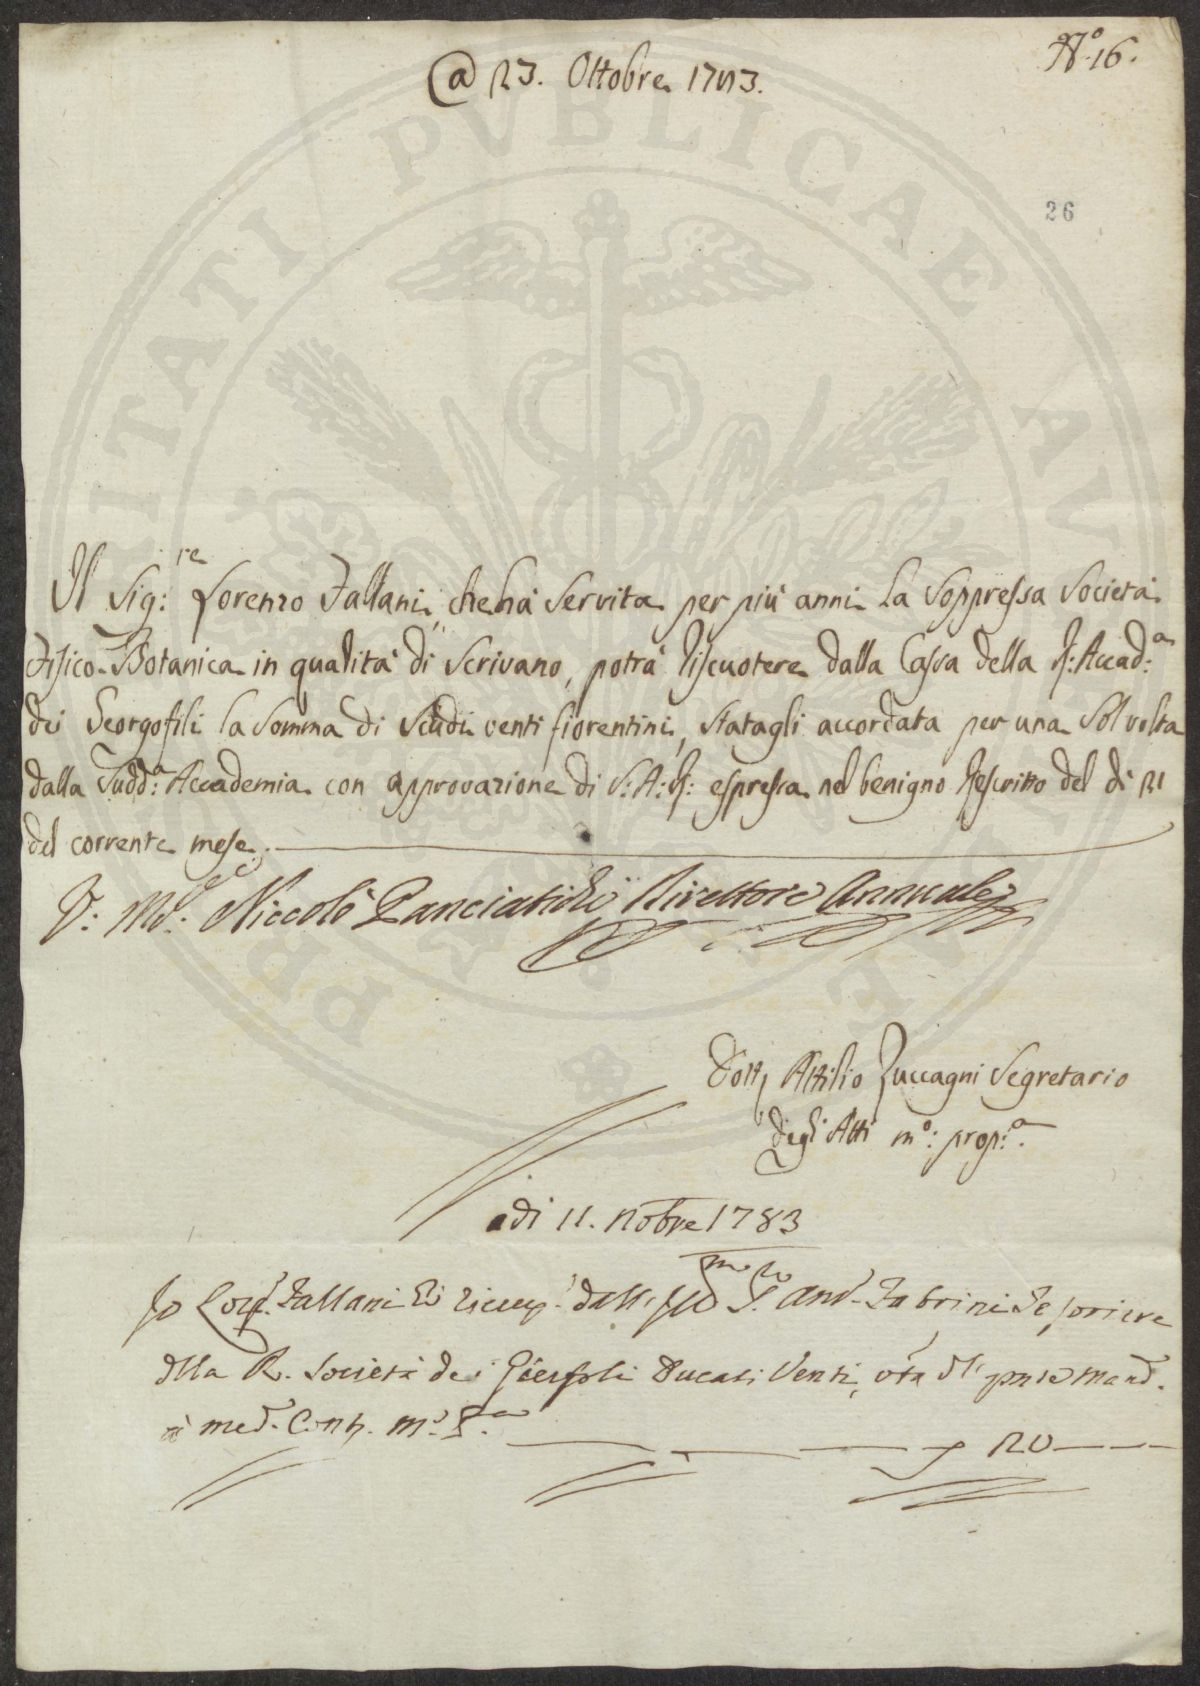 N.º 16.
@ 23. Ottobre 1783.
26
Il Sig:re Lorenzo Fallani, che hà servita per più anni la Soppressa Società
Fisico-Botanica in qualità di Scrivano, potrà riscuotere dalla Cassa della R: Accad:a
dei Georgofili la somma di Scudi venti fiorentini, statagli accordata per una sol volta
dalla Sudd:a Accademia con approvazione di S: A: R: espressa nel benigno Rescritto del dì 21
del corrente mese.
V: Niccolò Panciatichi Direttore Annuale
Dott. Attilio Zuccagni Segretario
degl'Atti m:o prop:a
adi 11. Nobre 1783
Io Fallani dall' And. Fabrini Tesoriere
della R. Società dei Ducati Venti, mand.
20
PROSPERITATI PVBLICAE AVGENDAE